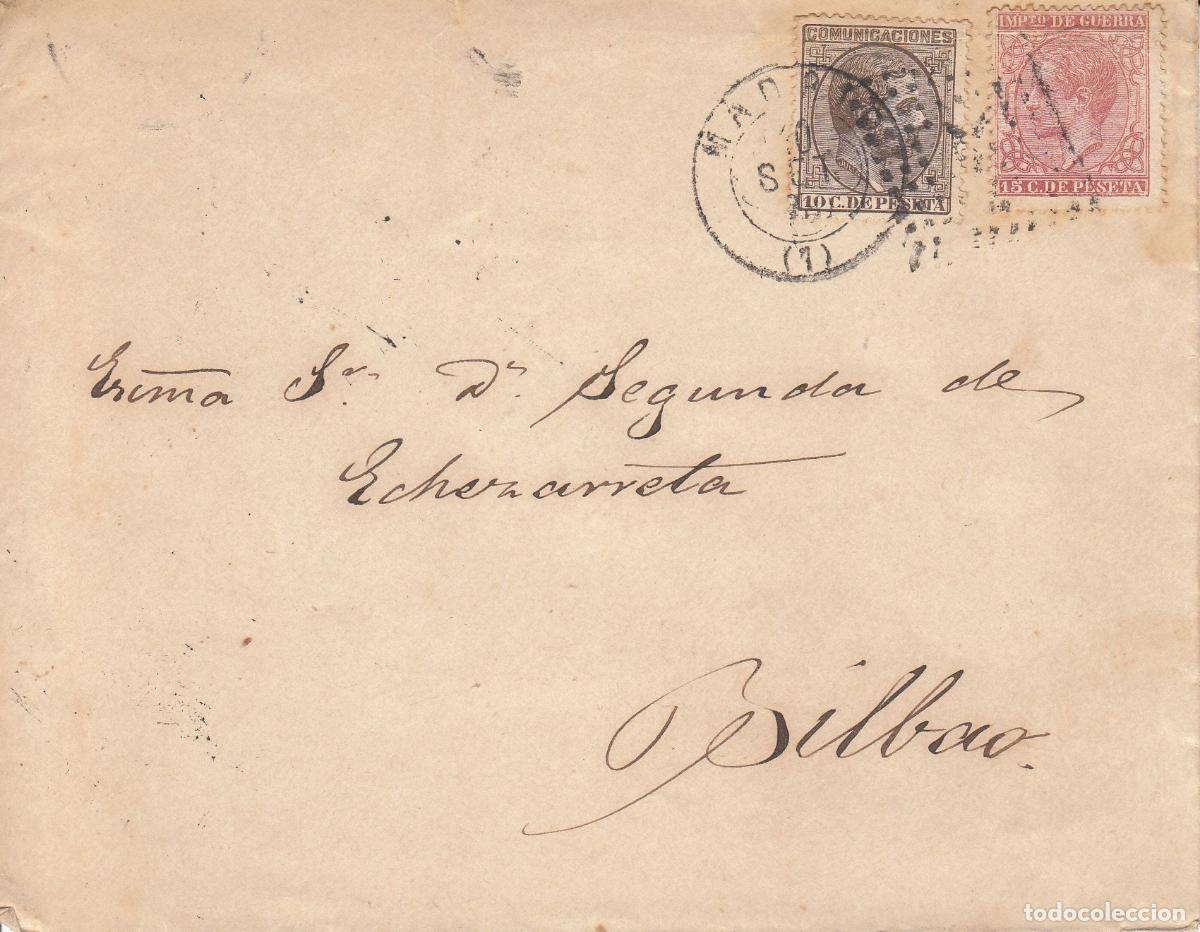 COMUNICACIONES
10 C. DE PESETA
IMPTO DE GUERRA
15 C. DE PESETA
(1)
Exima Sra Da Segunda de
Echezarreta
Bilbao.
todocoleccion